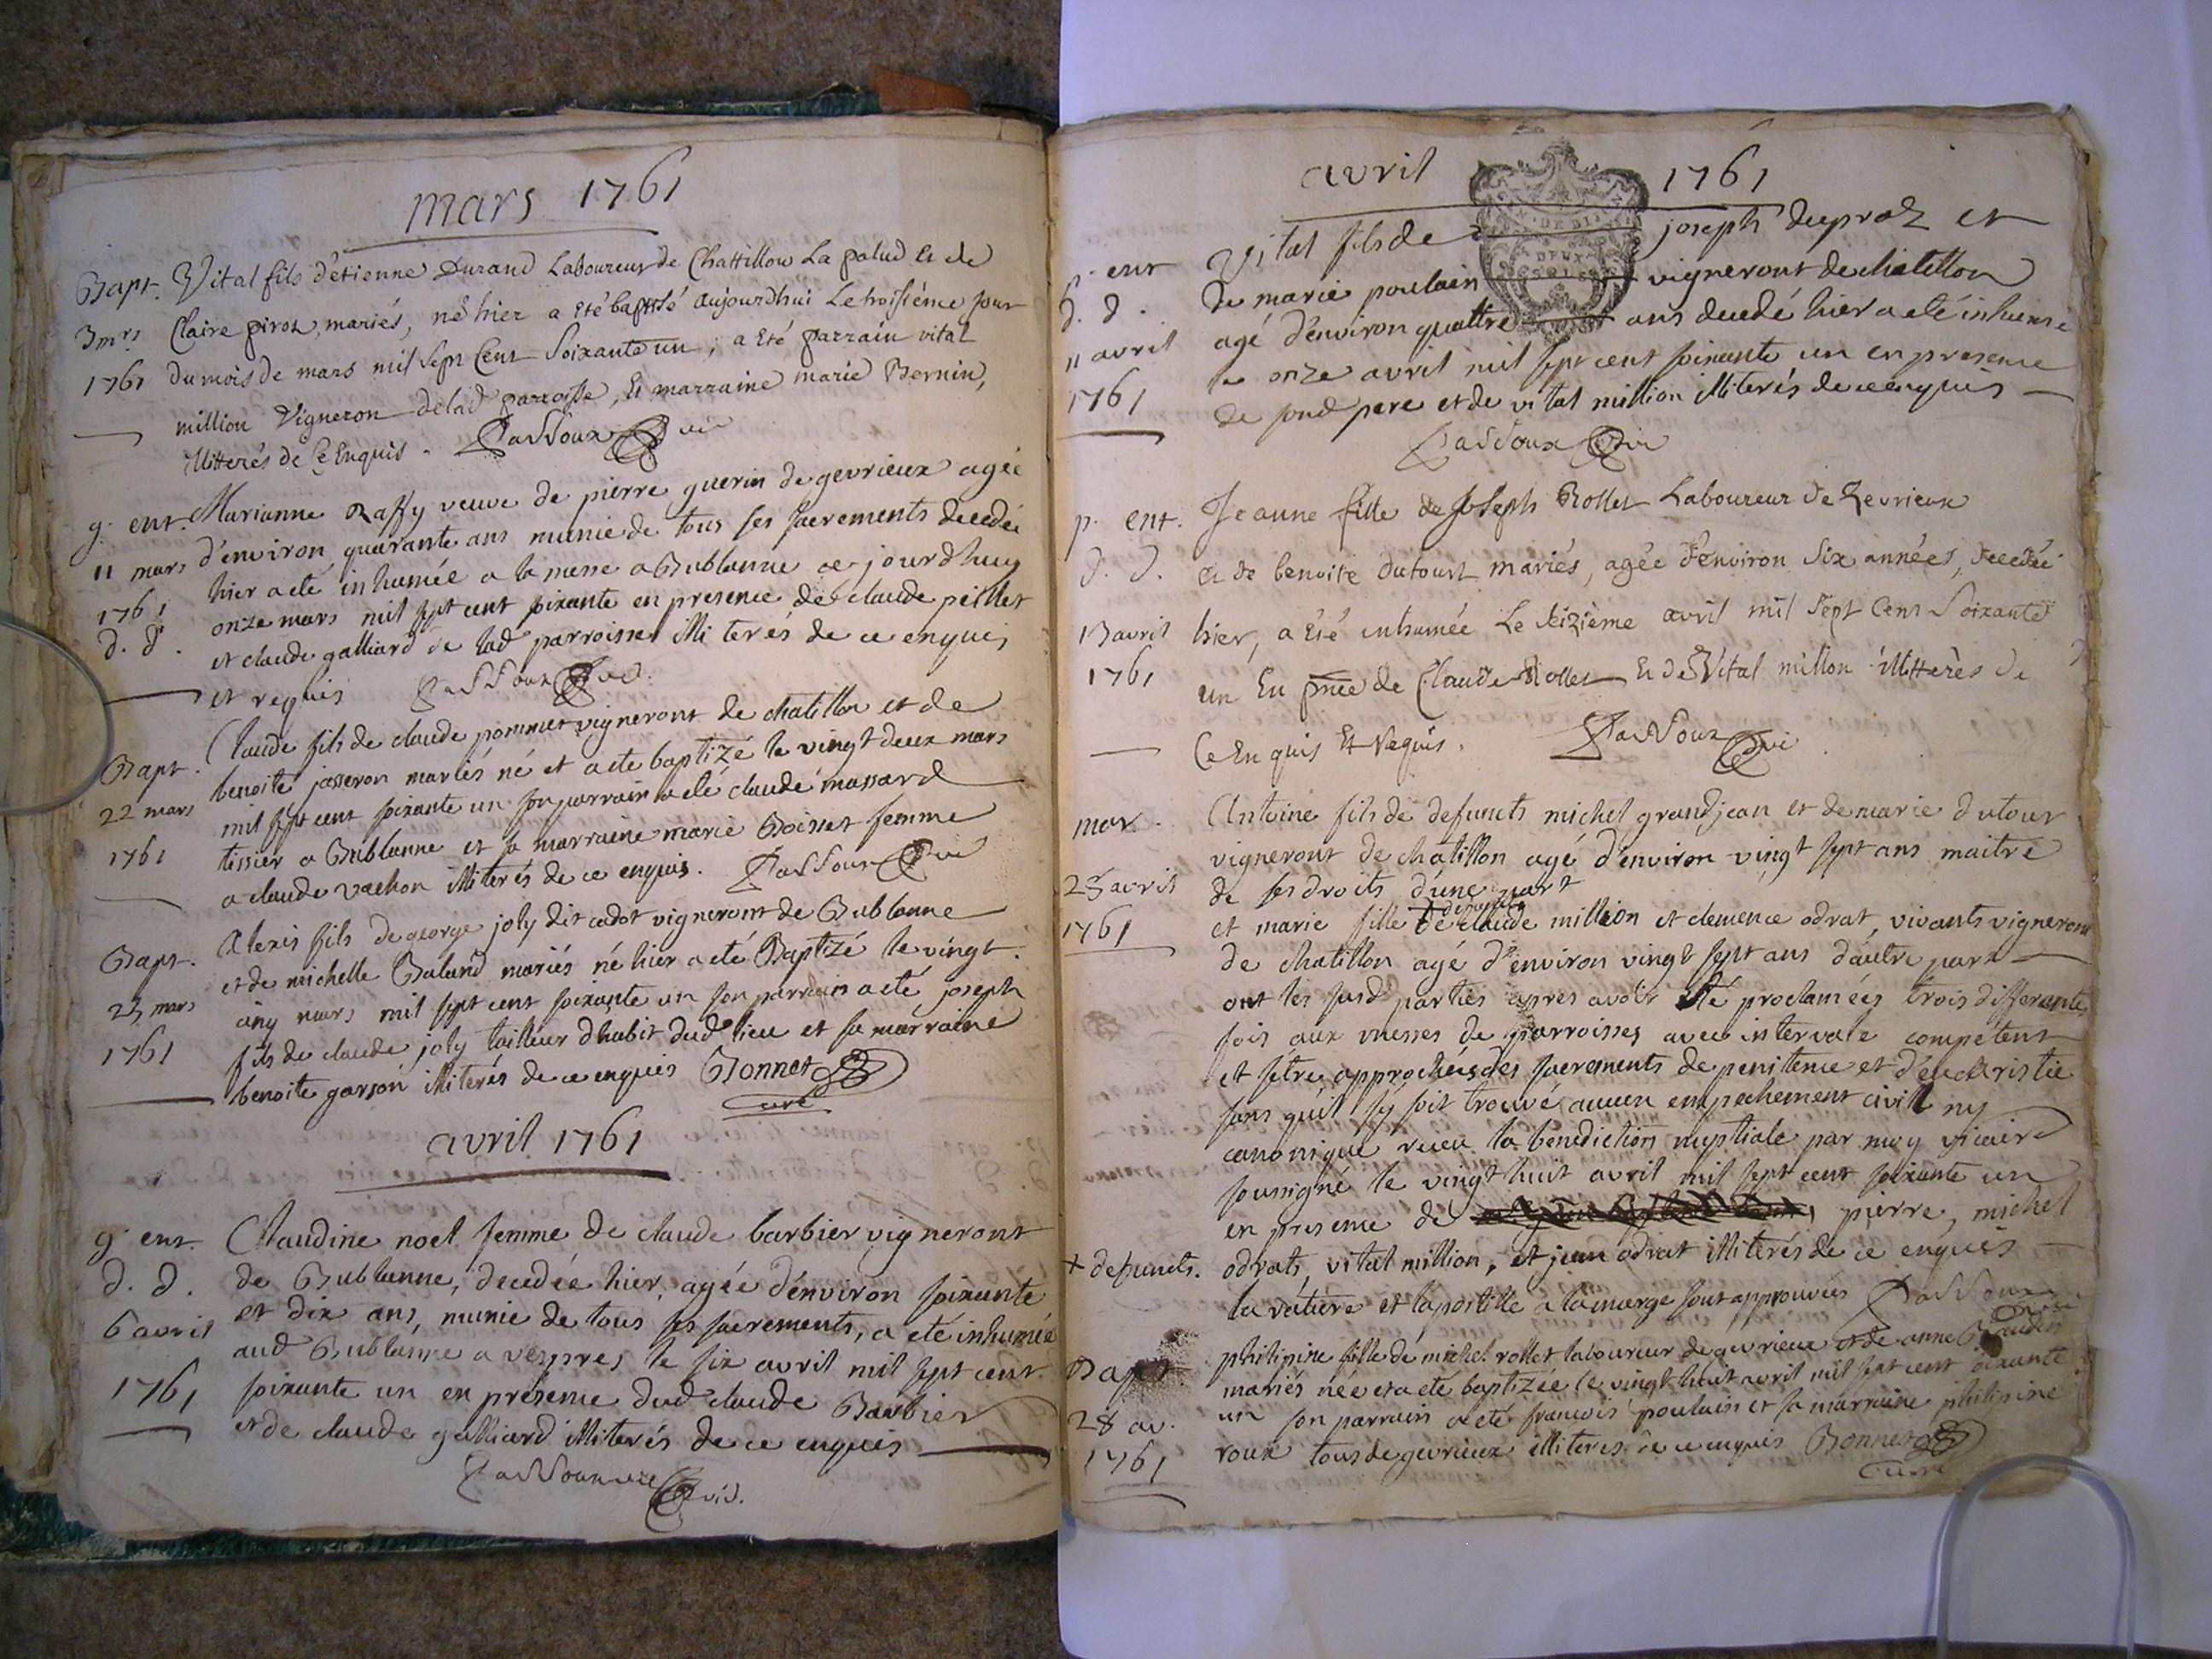 mars 1761
Bapt. Vital fils d'étienne Durand Laboureur de Chattillon La palud et de
3 mrs Claire piron, mariés, né hier a été baptisé aujourdhui Le troisiéme jour
1761 du mois de mars mil sept Cent Soixante un ; a été parrain vital
million Vigneron de lad parroisse, Et marraine marie Bernin,
illitterés de Ce Enquis. Passoux vic
g. ent. Marianne Raffy veuve de pierre guerin de gevrieux agée
11 mars d'environ quarante ans munie de tous ses sacrements decedée
1761 hier a eté inhumée a la messe a Bublanne ce jourdhuy
d. d. onze mars mil sept cent soixante en presence de claude peillet
et claude galliard de lad parroisse illiterés de ce enquis
et requis Passoux vic.
Bapt. Claude fils de claude pommet vigneront de chatillon et de
22 mars benoite josseron mariés né et a eté baptizé le vingt deux mars
1761 mil sept cent soixante un son parrain a eté claude massard
tissier a Bublanne et sa marraine marie Boisset femme
a claude vachon illiterés de ce enquis. Passoux vic
Bapt. Alexis fils de george joly dit cadot vigneront de Bublanne
25 mars et de michelle Baland mariés né hier a eté Baptizé le vingt
1761 cinq mars mil sept cent soixante un son parrain a eté joseph
fils de claude joly tailleur dhabit dud lieu et sa marraine
benoite garson illiterés de ce enquis Bonnet
curé
avril 1761
g. ent. Claudine noel femme de claude barbier vigneront
d. d. de Bublanne, decedée hier, agée d'environ soixante
6 avril et dix ans, munie de tous ses sacrements, a eté inhumée
aud Bublanne a vespres le six avril mil sept cent
1761 soixante un en présence dud claude Barbier
et de claude galliard illiterés de ce enquis
Passoux vic.
avril 1761
p. ent Vital fils de joseph duproz et
d. d. de marie poulain vigneront de chatillon
11 avril agé d'environ quattre ans decedé hier a eté inhumé
1761 le onze avril mil sept cent soixante un en presence
de sond pere et de vital million illiterés de ce enquis
Passoux vic
p. ent. Jeanne fille de Joseph Rollet Laboureur de Gevrieux
d. d. et de benoite dutour mariés, agée d'environ Six années, decedée
13 avril hier, a été inhumée Le avril mil Sept Cent Soixante
1761 un En pnce de Claude Rollet Et de Vital million illitterès de
Ce Enquis Et Requis. Passoux vic.
mar. Antoine fils de defuncts michel grandjean et de marie dutour
vigneront de chatillon agé d'environ vingt sept ans maitre
25 avril de ses droits d'une part
1761 et marie fille + de claude million et clemence odrat, vivants vigneront
de chatillon agé d'environ vingt sept ans d'autre part
ont les susd parties apres avoir été proclamées trois differante
fois aux messes de parroisses avec intervale compétent
et s'etre approchés des sacrements de penitence et d'eucaristie
sans qu'il s'y soit trouvé aucun empechement civill ny
canonique receu la benediction nuptiale par moy vicaire
soussigné le vingt huit avril mil sept cent soixante un
en presence de pierre, michel
+ defuncts. odrats, vital million, et jean odrat illiterés de ce enquis
la rature et lapostille a la marge sont approuvées Passoux
vic
Bapt. philipine fille de michel rollet laboureur de gevrieux et de anne
mariés née et a eté baptizée le vingt huit avril mil sept cent soixante
28 av. un son parrain a eté francois poulain et sa marraine philipine
1761 roux tous de gevrieux illiteres de ce enquis Bonnet
Curé